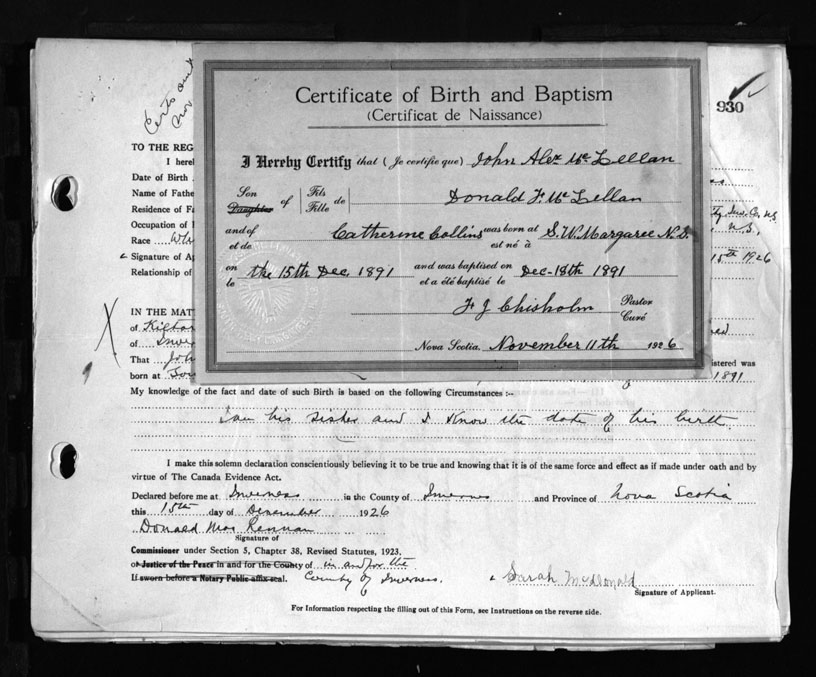 Certs and
Nov
930
Certificate of Birth and Baptism
(Certificat de Naissance)
I Hereby Certify that (Je certifie que) John Alex McLellan
Son Daughter of Fils Fille de Donald F. McLellan
and of et de Catherine Collins was born at est né à S.W. Margaree N.S.
on le the 15th Dec 1891 and was baptised on et a été baptisé le Dec-18th 1891
F J Chisholm Pastor Curé
Nova Scotia, November 11th 1926
TO THE REG
I here
Date of Birth
Name of Fathe
Residence of Fa
Co, N.S.
Occupation of
N.S.
Race Whi
Signature of Ap
15th 1926
Relationship of
IN THE MATT
of
of Inver
That John
istered was
born at
1891
My knowledge of the fact and date of such Birth is based on the following Circumstances :--
I am his sister and I know the date of his birth.
I make this solemn declaration conscientiously believing it to be true and knowing that it is of the same force and effect as if made under oath and by
virtue of The Canada Evidence Act.
Declared before me at Inverness in the County of Inverness and Province of Nova Scotia
this 15th day of December 1926
Donald Mac Lennan
Signature of
Commissioner under Section 5, Chapter 38, Revised Statutes, 1923.
or Justice of the Peace in and for the County of in and for the
If sworn before a Notary Public affix seal. County of Inverness.
Sarah McDonald
Signature of Applicant.
For Information respecting the filling out of this Form, see Instructions on the reverse side.